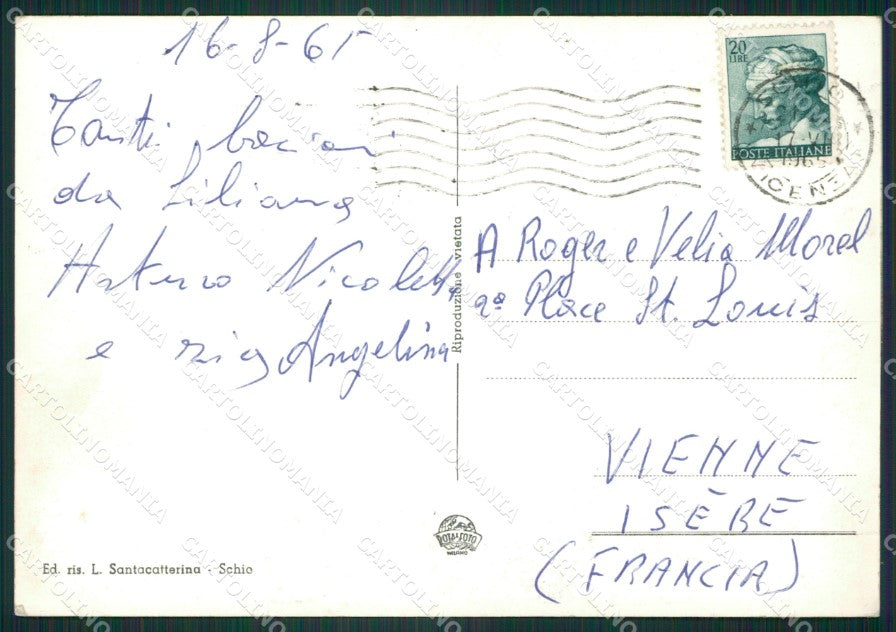 16-8-65
Tanti bacioni
da Liliana
Arturo Nicoletta
e zia Angelina
Riproduzione vietata
20
LIRE
POSTE ITALIANE
1965
VICENZA
A Roger e Velia Morel
Place St. Louis
VIENNE
ISÈRE
(FRANCIA)
ROTALFOTO
MILANO
Ed. ris. L. Santacatterina - Schio
CARTOLINOMANIA